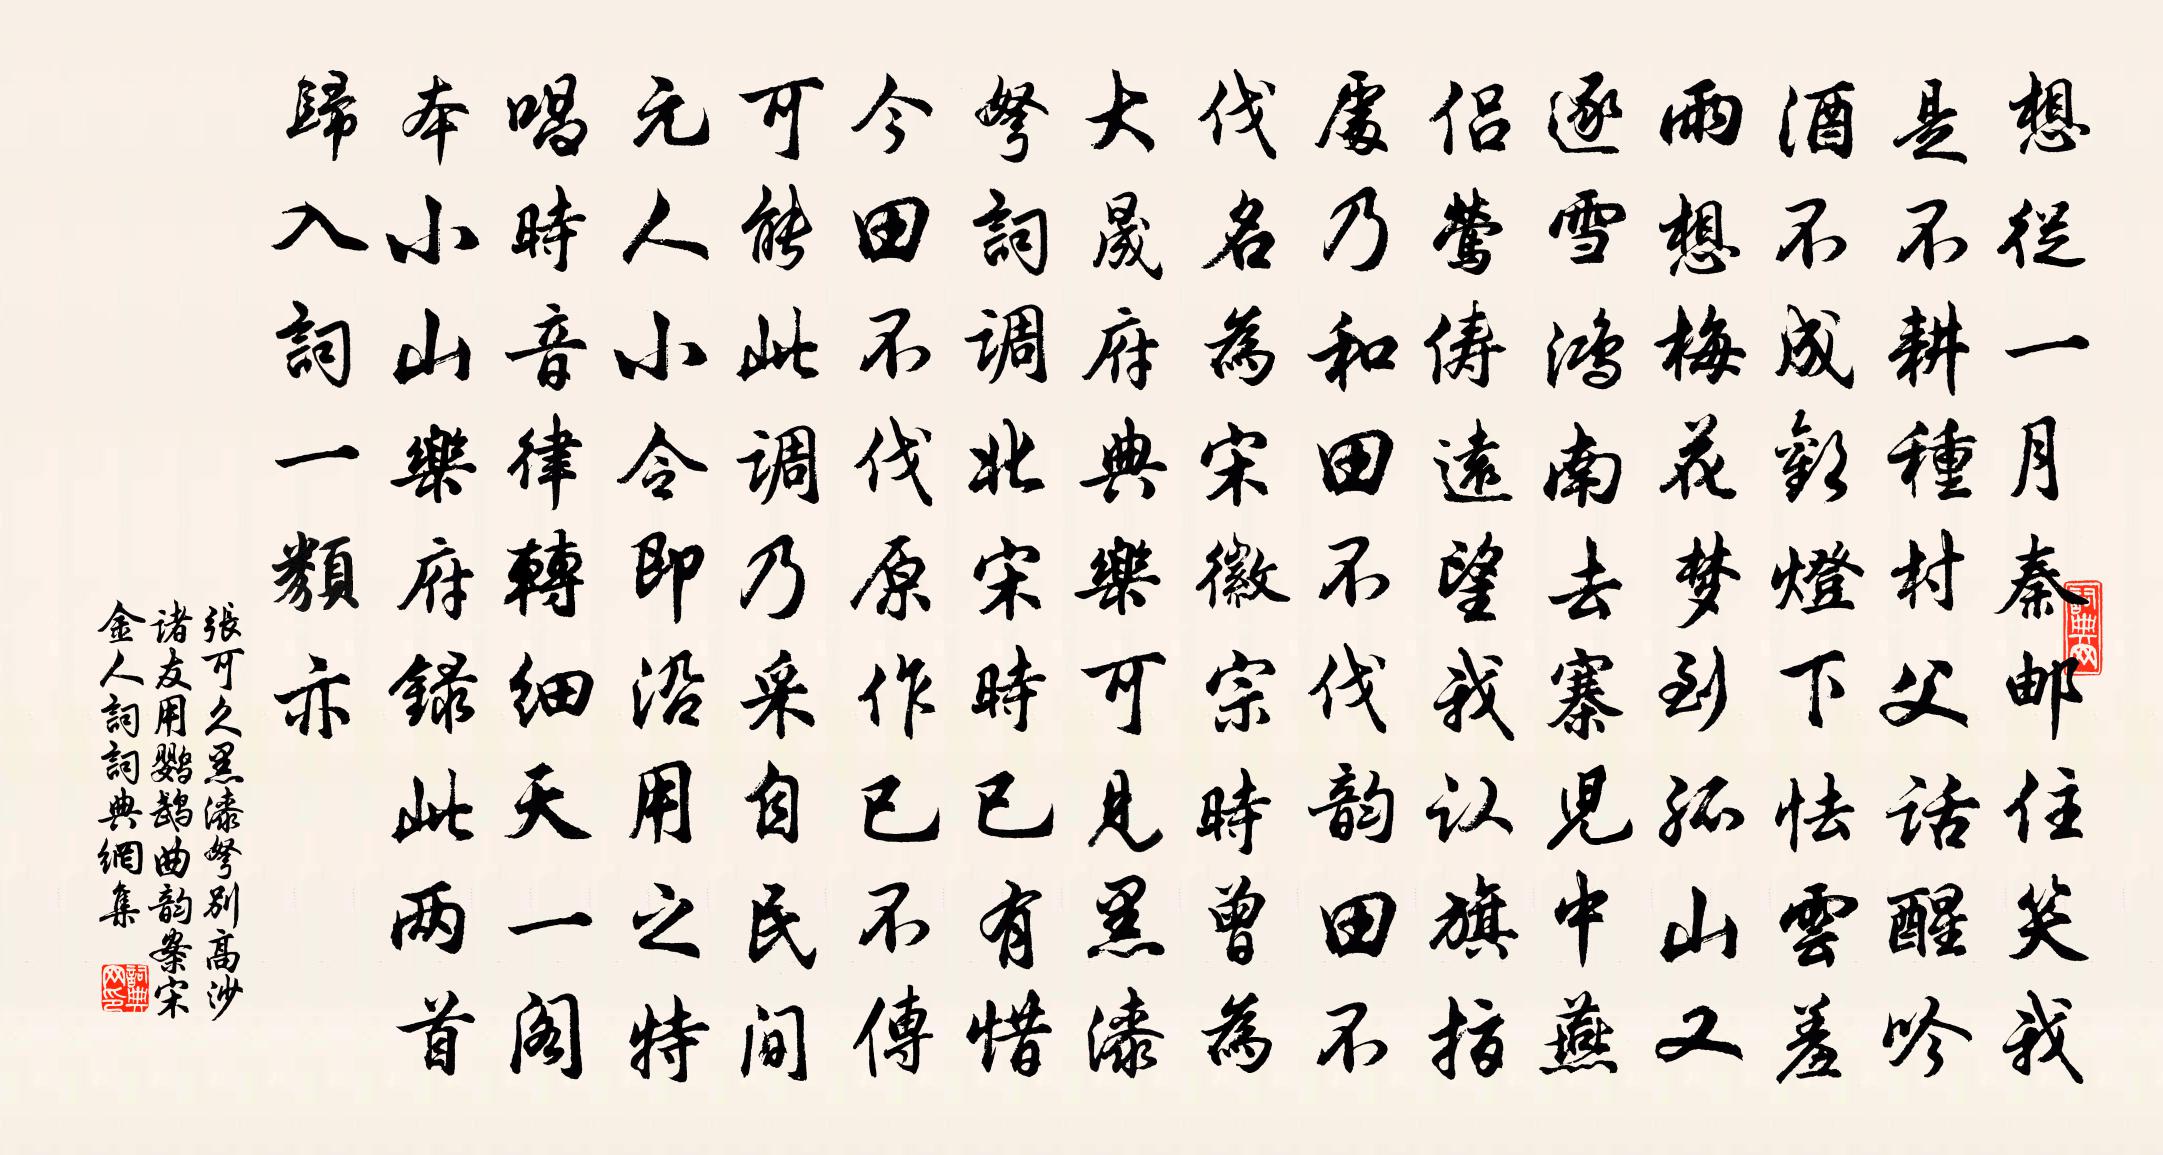 想從一月秦邮住笑我
是不耕種村父話醒吟
酒不成歡燈下怯雲羞
雨想梅花梦到孤山又
逐雪鴻南去寨児中燕
侣鶯儔遠望我认旗指
處乃和田不伐韵田不
伐名為宋徽宗時曾為
大晟府典樂可見黑漆
弩詞调北宋時已有惜
今田不伐原作已不傳
可能此调乃采自民间
元人小令即沿用之特
唱時音律轉细天一阁
本小山樂府録此两首
歸入詞一類亦
張可久黑漆弩别高沙
诸友用鹦鹉曲韵案宋
金人詞詞典網集
詞典网
詞典网印